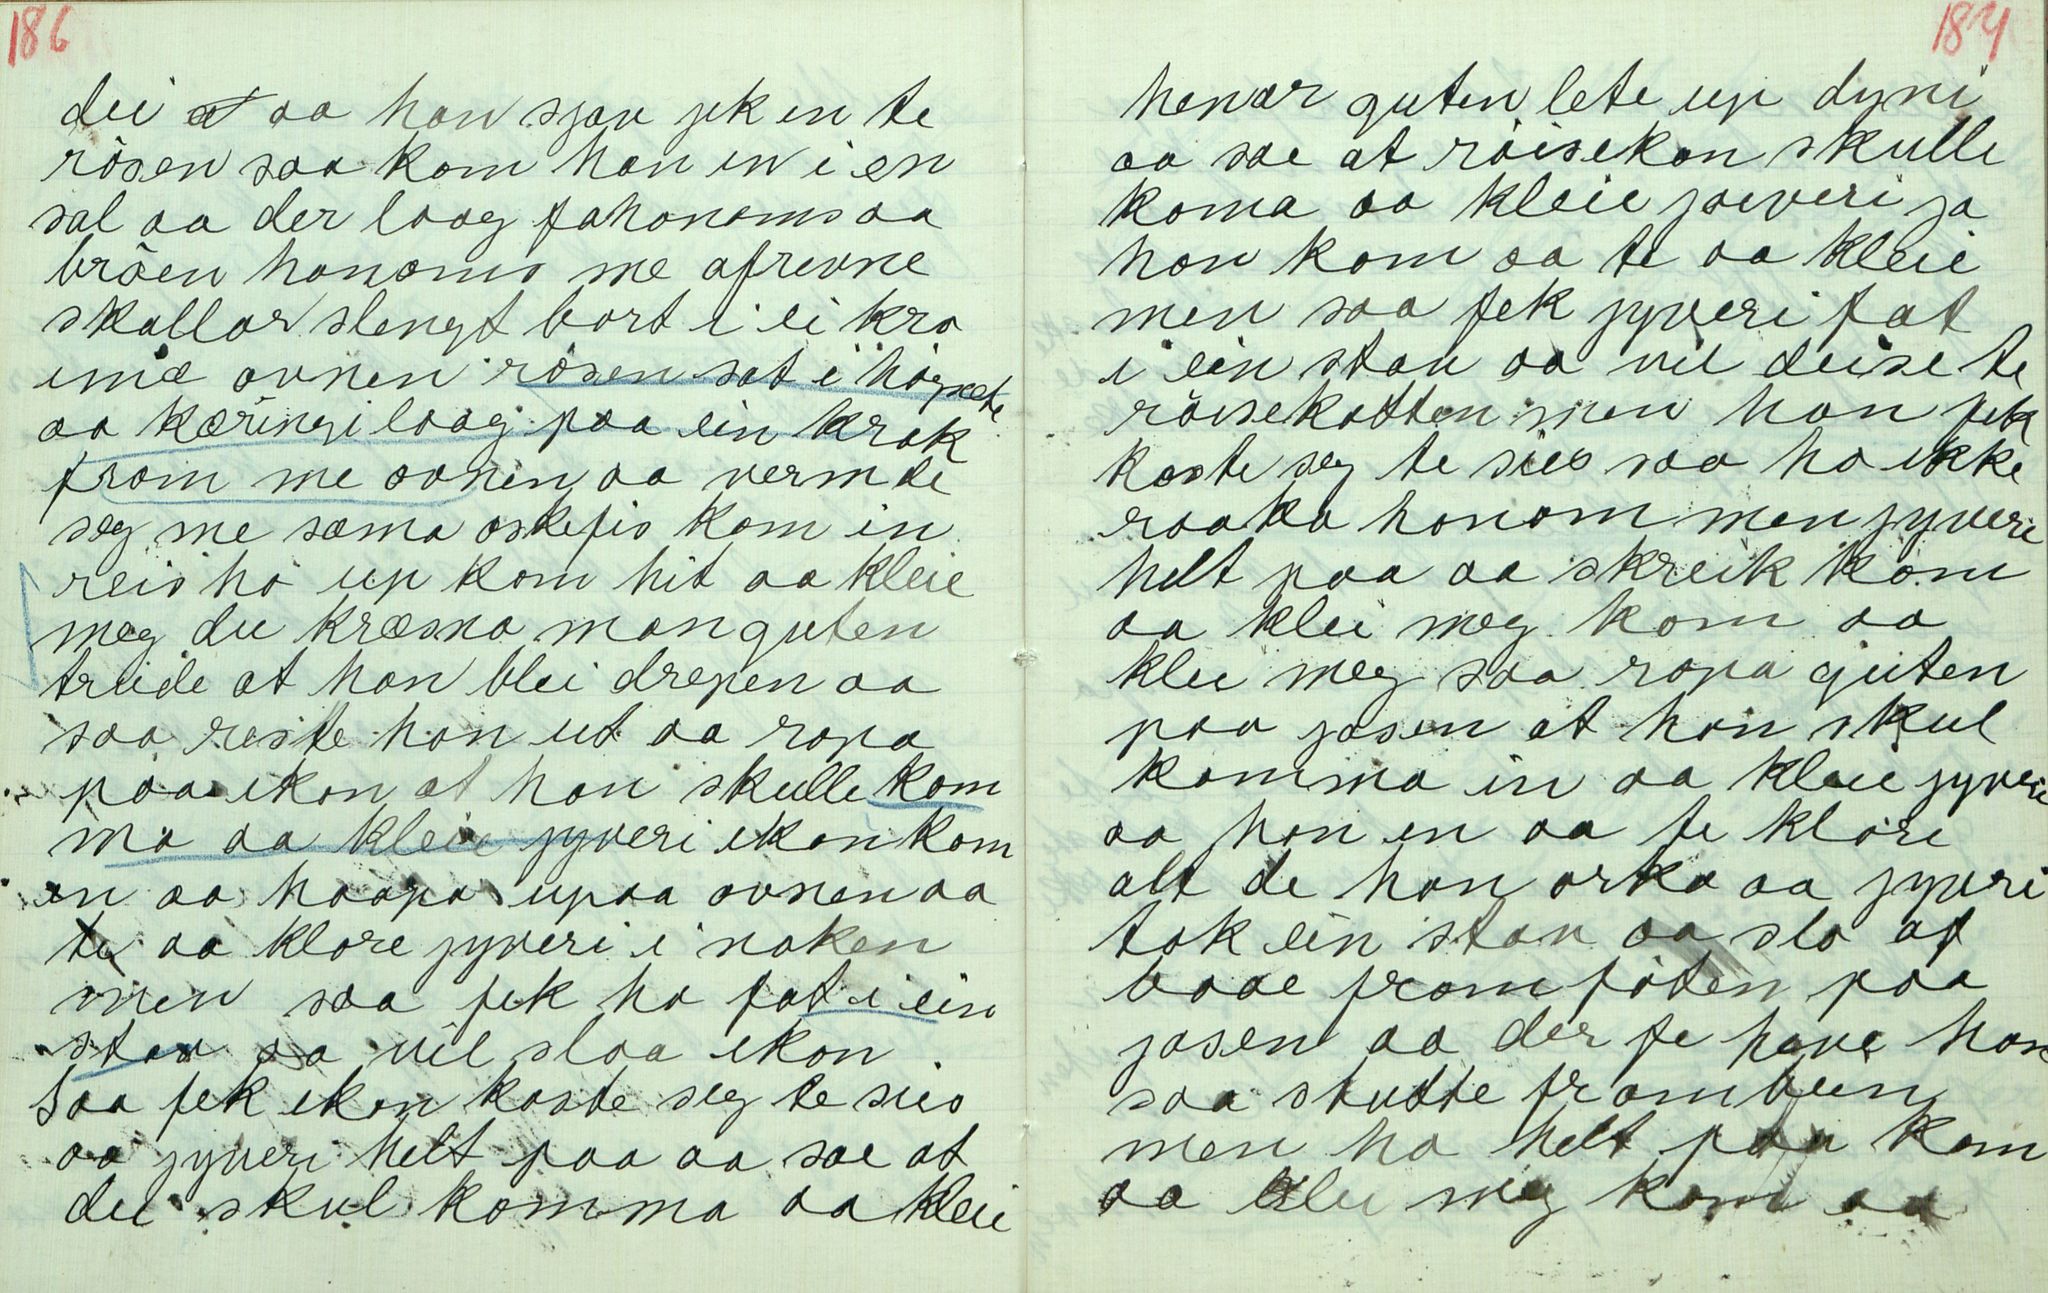 186
dei aa han sjøv jek en te
røsen saa kom han in i en
sal aa der laag fa honoms aa
brøen honoms me afrevne
skallar slengt bort i ei kro
imæ ovnen røsen sat i høgsæte
aa kæringi laag paa ein krak
fram me ovnen aa vermde
seg me sama oskefis kom in
reis ho up kom hit aa kleie
meg du kræsna man guten
trude at han blei drepen aa
saa reiste han ut aa ropa
paa ikon at han skulle kom
ma aa kleie jyveri ikon kom
in aa haapa upaa ovnen aa
te aa klore jyveri i naken
men saa fek ho fat i ein
stav aa vil slaa ikon
saa fek ikon kaste seg te sies
aa jyveri helt paa aa sae at
du skul komma aa kleie
187
henar guten lete up dyni
aa sae at røisekon skulle
koma aa kleie jyveri ja
han kom aa te aa kleie
men saa fek jyveri fat
i ein stav aa vil deise te
røisekatten men han fek
kaste seg te sies saa ho ikke
raaka honom men jyveri
helt paa aa skreik kom
aa klei meg kom aa
klei meg saa ropa guten
paa jasen at han skul
komma in aa kleie jyveri
aa han in aa te klore
alt de han orka aa jyveri
tok ein stav aa slo af
baae framføten paa
jasen aa der fe have han
saa stutte frambein
men ho helt paa kom
aa klei meg kom aa